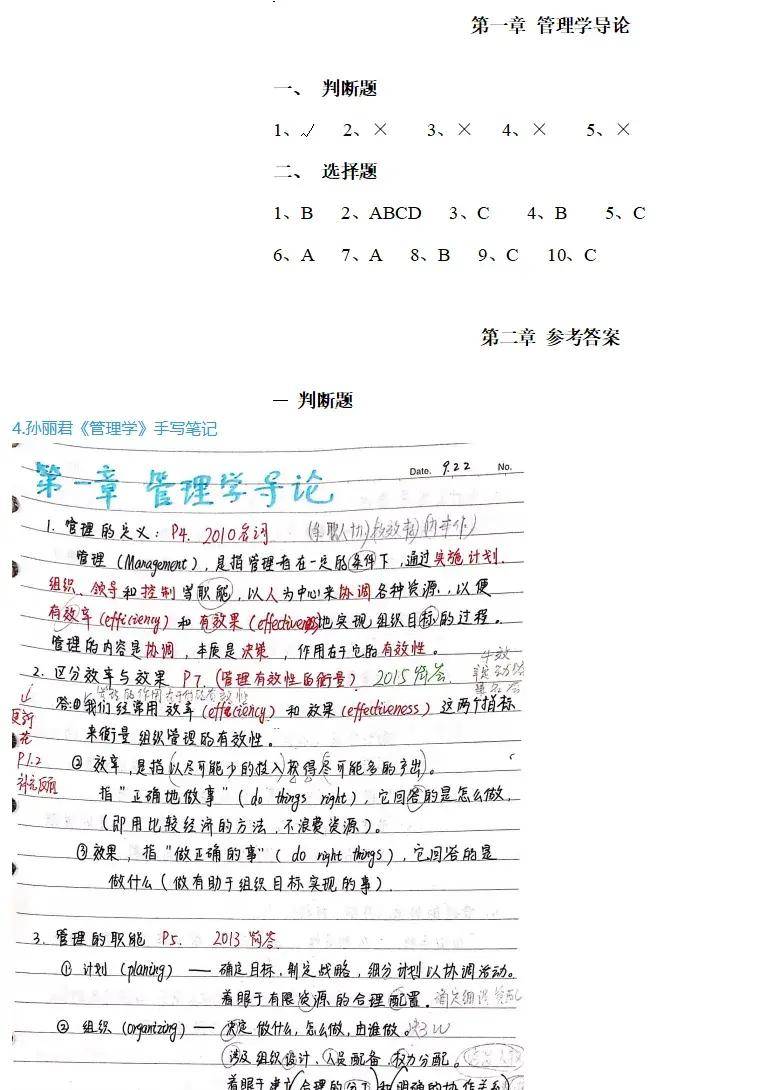 第一章 管理学导论
一、 判断题
1、√ 2、× 3、× 4、× 5、×
二、 选择题
1、B 2、ABCD 3、C 4、B 5、C
6、A 7、A 8、B 9、C 10、C
第二章 参考答案
一 判断题
4.孙丽君《管理学》手写笔记
第一章 管理学导论
Date. 9.22 No.
1. 管理的定义: P4. 2010名词
管理 (Management), 是指管理者在一定的条件下, 通过实施计划.
组织、领导和控制等职能, 以人为中心来协调各种资源, 以便
有效率(efficiency) 和 有效果(effectiveness)地实现组织目标的过程。
管理的内容是协调, 本质是决策, 作用在于它的有效性。
2. 区分效率与效果 P7. (管理有效性的衡量) 2015简答
答:①我们经常用效率(efficiency) 和 效果(effectiveness) 这两个指标
来衡量组织管理的有效性。
P1.2
② 效率, 是指(以尽可能少的投入)获得尽可能多的产出。
指"正确地做事"( do things right ), 它回答的是怎么做,
(即用比较经济的方法, 不浪费资源)。
③效果, 指"做正确的事"( do right things ), 它回答的是
做什么(做有助于组织目标实现的事).
3. 管理的职能 P5. 2013 简答
① 计划 (planing) —— 确定目标, 制定战略, 细分计划以协调活动。
着眼于有限资源的合理配置.
② 组织 (organizing) —— 决定做什么, 怎么做, 由谁做. 3W
涉及组织设计、人员配备、权力分配。
着眼于建立(合理的分工)和(明确的协作关系)